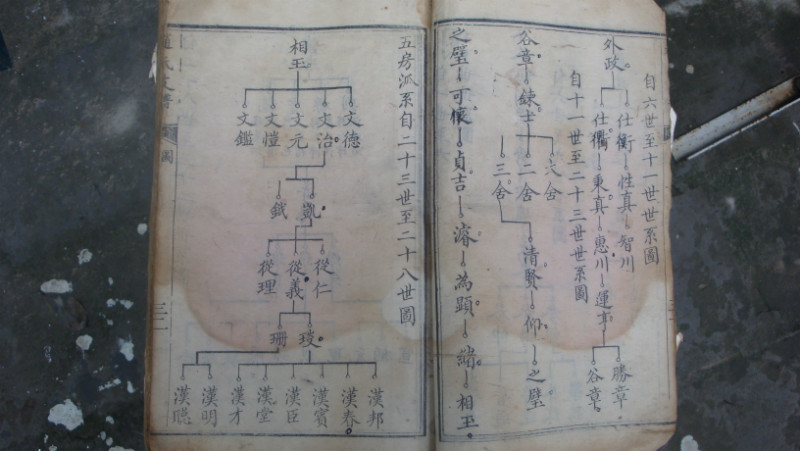 自六世至十一世世系圖
外政
仕衡 性真 智川
仕衢 東真 惠川 運亭
勝章
谷章
自十一世至二十三世世系圖
谷章 鍊士
六舍
二舍
三舍 清賢 仰 之璧
之璧 可懷 貞吉 濬 為顯 緒 相玉
五房派系自二十三世至二十八世圖
相玉
文德 文治 文元 文愷 文鑑
凱 鉞
從仁 從義 從理
琰 珊
漢邦 漢春 漢賓 漢臣 漢堂 漢才 漢明 漢聰
圖